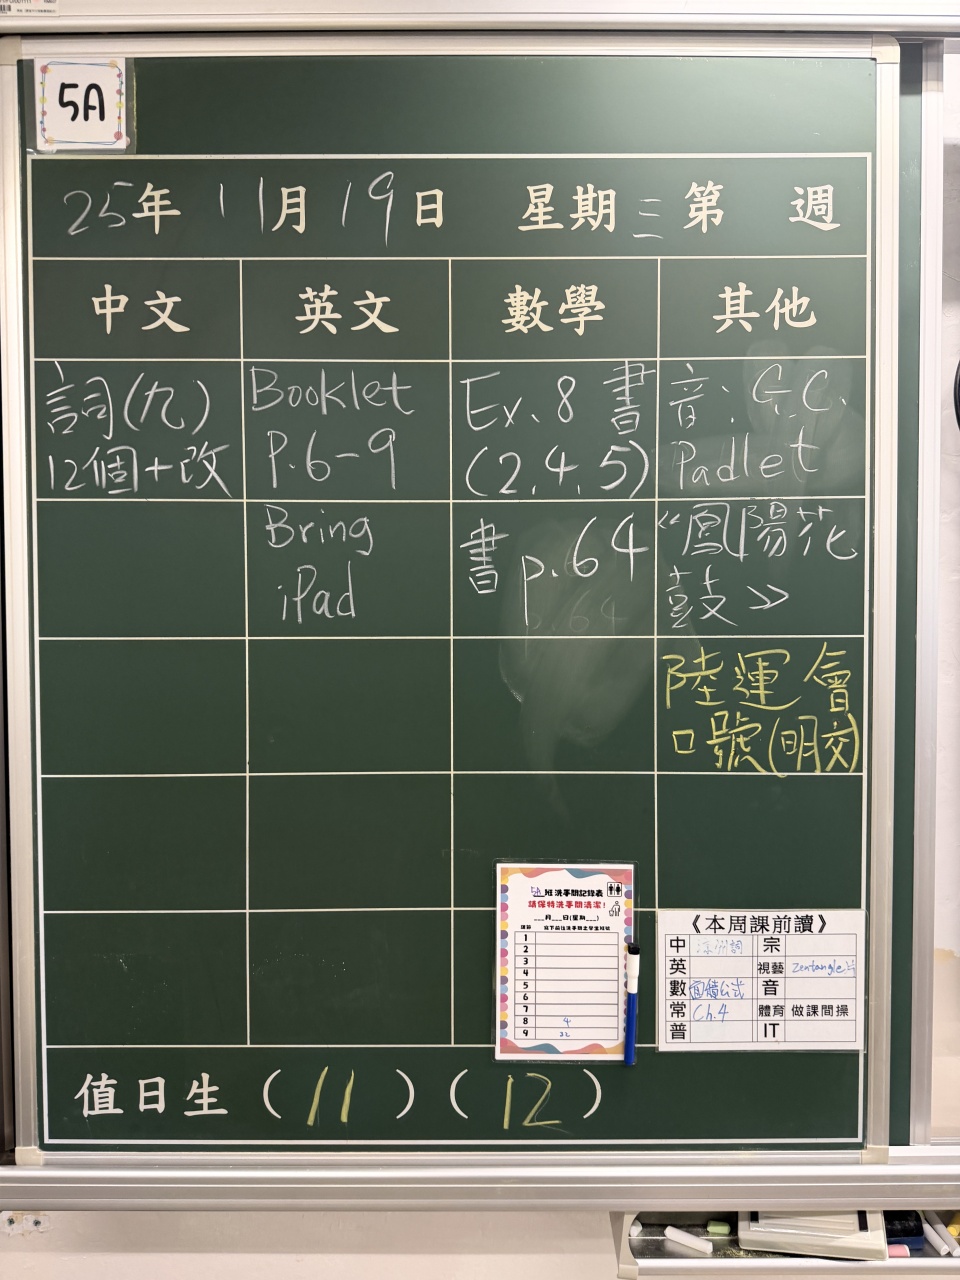 5A
25年 11月 19日 星期三 第 週
中文 英文 數學 其他
詞(九)
12個+改
Booklet
P.6-9
Bring
iPad
Ex. 8 書
(2, 4, 5)
書 p.64
音: G.C.
Padlet
《鳳陽花
鼓》
陸運會
口號(明交)
5A班洗手間記錄表
請保持洗手間清潔!
___月___日(星期___)
1
2
3
4
5
6
7
8 4
9 22
《本周課前讀》
中 涼州詞 宗
英 視藝 Zentangle
數 面積公式 音
常 Ch.4 體育 做課間操
普 IT
值日生 (11) (12)